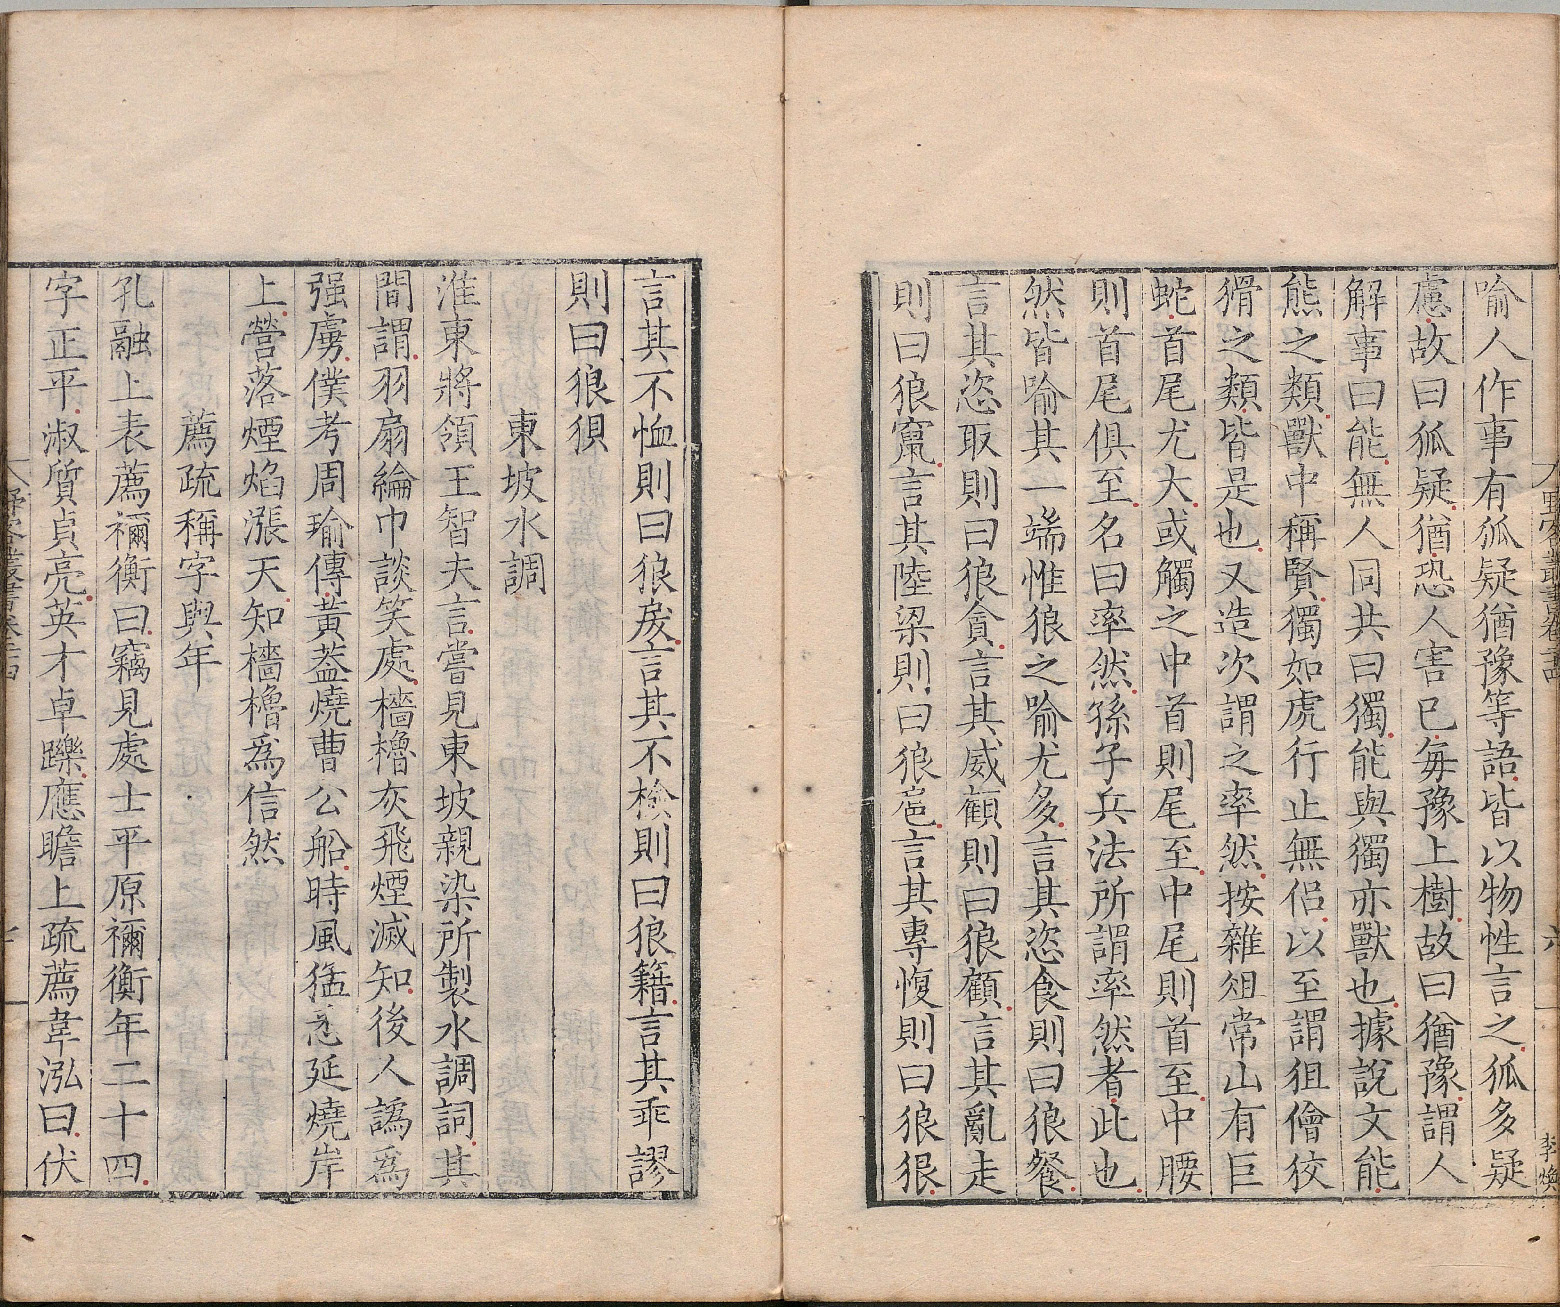 野客叢書卷二十四
六
李煥
喻人作事有狐疑猶豫等語皆以物性言之狐多疑
慮故曰狐疑猶恐人害已每豫上樹故曰猶豫謂人
解事曰能無人同共曰獨能與獨亦獸也據說文能
熊之類獸中稱賢獨如虎行止無侣以至謂狙儈狡
猾之類皆是也又造次謂之率然按雜俎常山有巨
蛇首尾尤大或觸之中首則尾至中尾則首至中腰
則首尾俱至名曰率然孫子兵法所謂率然者此也
然皆喻其一端惟狼之喻尤多言其恣食則曰狼餐
言其恣取則曰狼貪言其威顧則曰狼顧言其亂走
則曰狼竄言其陸梁則曰狼扈言其專愎則曰狼狠
言其不恤則曰狼戾言其不檢則曰狼籍言其乖謬
則曰狼狽
東坡水調
淮東將領王智夫言嘗見東坡親染所製水調詞其
間謂羽扇綸巾談笑處檣櫓灰飛煙滅知後人譌爲
强虜僕考周瑜傳黃葢燒曹公船時風猛悉延燒岸
上營落煙焰漲天知檣櫓爲信然
薦疏稱字與年
孔融上表薦禰衡曰竊見處士平原禰衡年二十四
字正平淑質貞亮英才卓躒應瞻上疏薦韋泓曰伏
野客叢書卷二十四
七